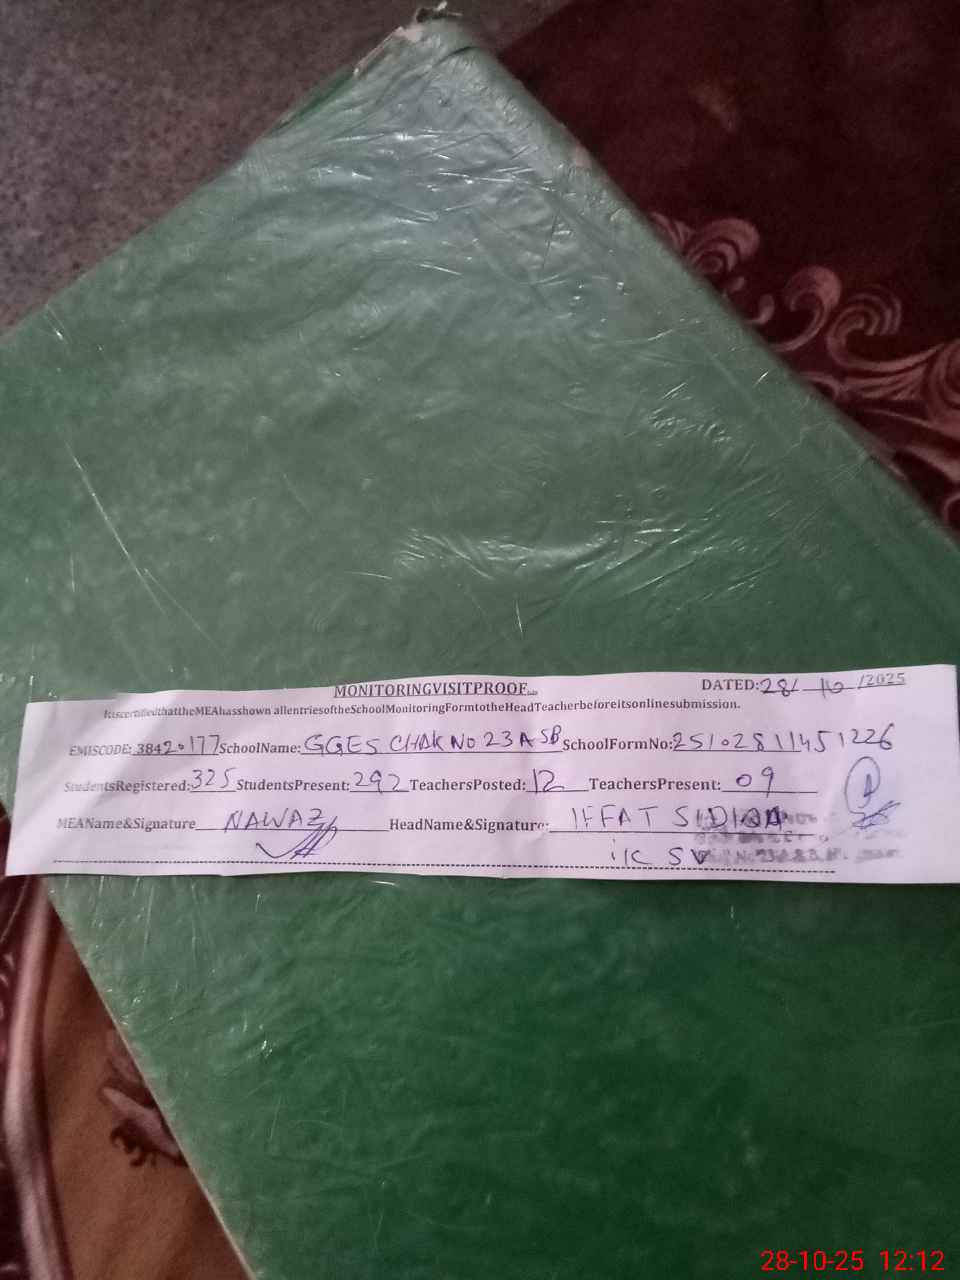 MONITORINGVISITPROOF
DATED:28/10/2025
ItiscertifiedthattheMEAhasshown allentriesoftheSchoolMonitoringFormtotheHeadTeacherbeforeitsonlinesubmission.
EMISCODE: 38420177 SchoolName: GGES CHAK NO 23 A SB SchoolFormNo: 25102811451226
StudentsRegistered: 325 StudentsPresent: 292 TeachersPosted: 12 TeachersPresent: 09
MEAName&Signature NAWAZ HeadName&Signature: IFFAT SIDIQA
28-10-25 12:12